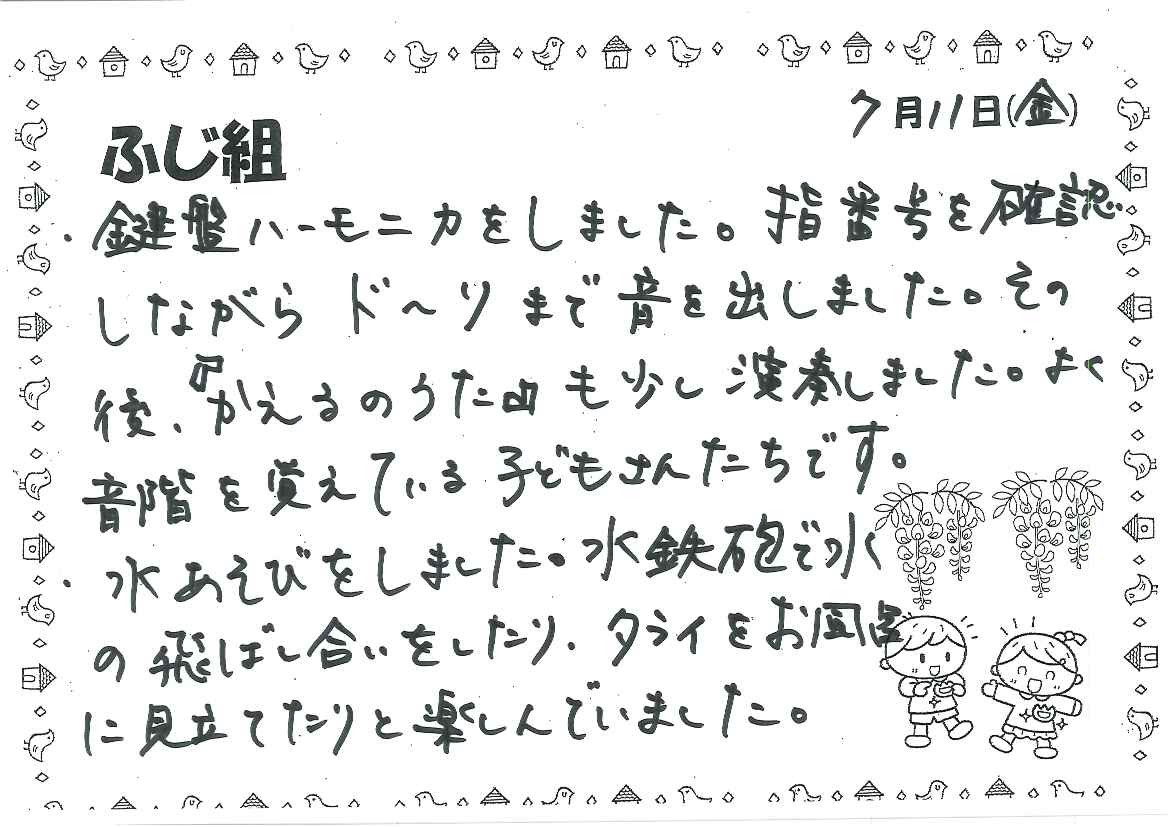 7月11日(金)
ふじ組
・鍵盤ハーモニカをしました。指番号を確認
しながらド～ソまで音を出しました。その
後、『かえるのうた』も少し演奏しました。よく
音階を覚えている子どもさんたちです。
・水あそびをしました。水鉄砲で水
の飛ばし合いをしたり、タライをお風呂
に見立てたりと楽しんでいました。